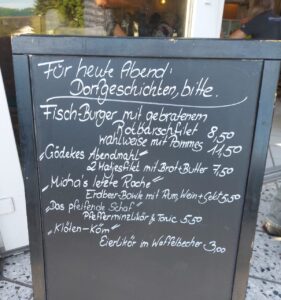 Für heute Abend:
Dorfgeschichten, bitte.
Fisch-Burger mit gebratenem
Rotbarschfilet 8,50
wahlweise mit Pommes 11,50
„Gödekes Abendmahl"
2 Matjesfilet mit Brot+Butter 7,50
„Micha's letzte Rache"
Erdbeer-Bowle mit Rum, Wein+Sekt 5,50
„Das pfeifende Schaf"
Pfefferminzlikör & Tonic 5,50
„Klöten-Köm"
Eierlikör im Waffelbecher 3,00